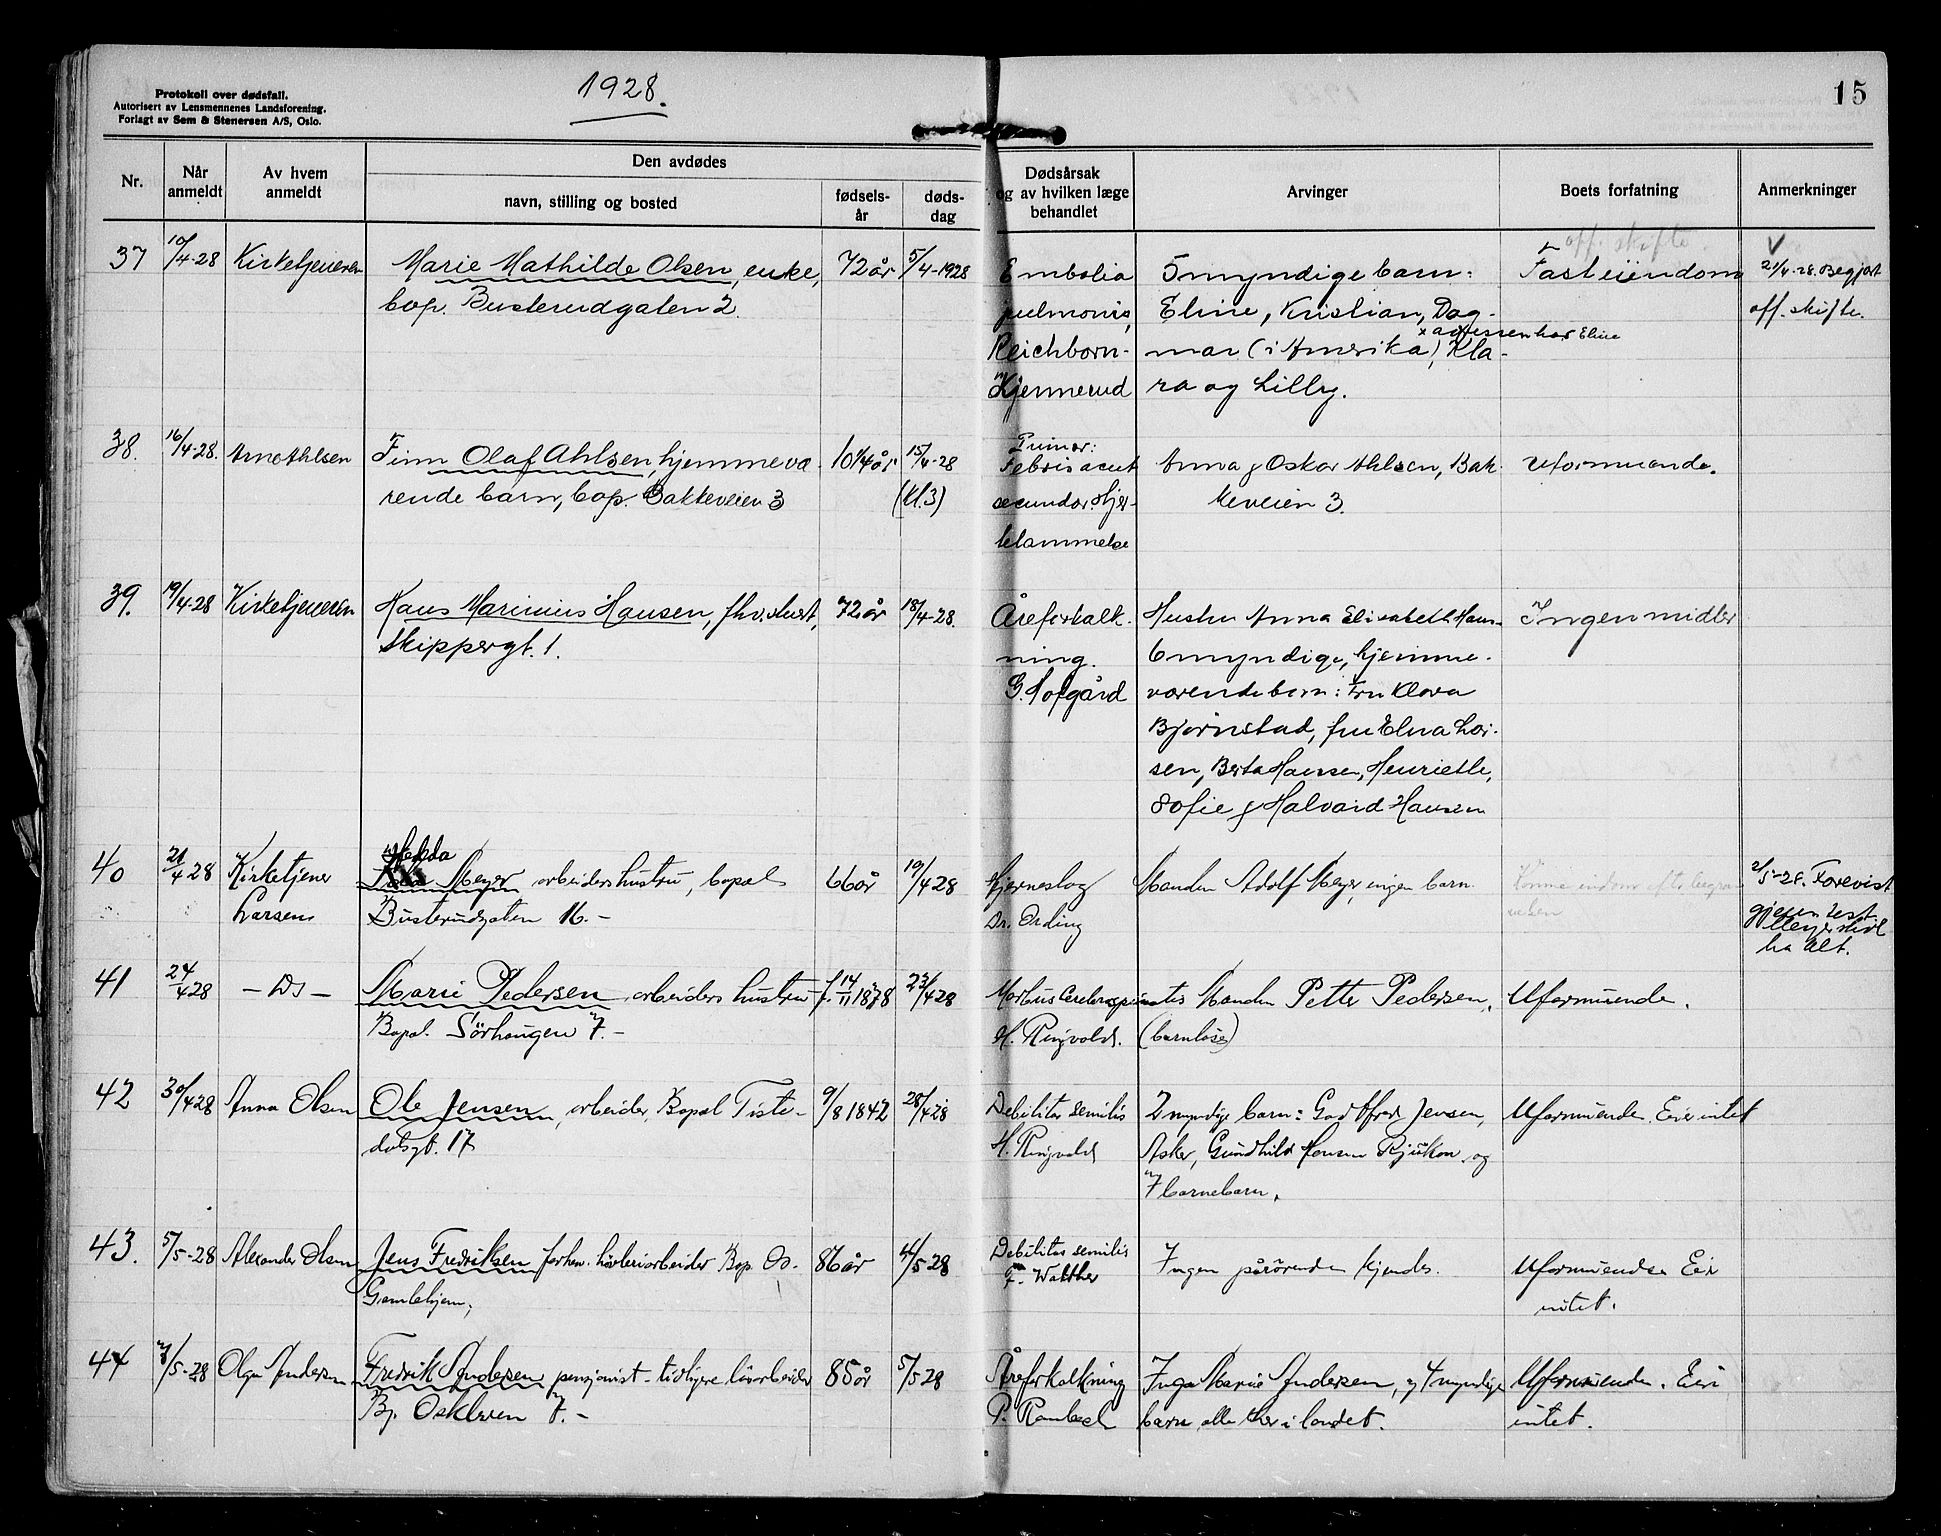 Protokoll over dødsfall.
Autorisert av Lensmennenes Landsforening.
Forlagt av Sem & Stenersen A/S, Oslo.
1928.
15
Nr.
Når anmeldt
Av hvem anmeldt
Den avdødes
navn, stilling og bosted
fødsels-år
døds-dag
Dødsårsak og av hvilken læge behandlet
Arvinger
Boets forfatning
Anmerkninger
37 10/4-28 Kirketjeneren Marie Mathilde Olsen, enke, 72 år 5/4-1928 Embolia 5 myndige barn: Fast eiendom 21/4-28. Begjært
off. skifte.
bop. Busterudgaten 2. pulmonis, Eline, Kristian, Dag- off. skifte.
x adressen hos Eline
Reichborn- mar (i Amerika), Kla-
Kjennerud ra og Lilly.
38. 16/4-28. Arne Ahlsen Finn Olaf Ahlsen, hjemmevæ 10 1/4 år 15/4-28 Primær: Febris acut Anna & Oskar Ahlsen, Bak- Uformuende.
rende barn, bop. Bakkeveien 3 (kl. 3) secundær. Hjer- keveien 3.
telammelse
39. 19/4-28 Kirketjeneren Hans Marinius Hansen, fhv. 72 år 18/4-28. Åreforkalk- Hustru Anna Elisabeth Hans- Ingen midler
Skippergt. 1. ning. 6 myndige, hjemme-
G. Hofgård værende barn: Fru Klara
Bjørnstad, fru Elna Lar-
sen, Berta Hansen, Henriette,
Sofie & Halvard Hansen
40 21/4 28 Kirketjener Hedda Meyer arbeiders hustru, bopæl 66 år 19/4 28 Hjerneslag Manden Adolf Meyer, ingen barn 2/5-28. Forevist
Larsen Busterudgaten 16.- Dr. Ording gjen. test.
Meyer skal
ha alt.
41 24/4 28 - Ds - Marie Pedersen arbeiders hustru f. 14/11 1878 23/4 28 Morbus Cerebrospinalis Manden Petter Pedersen, Uformuende.
Bopæl. Sörhaugen 7.- H. Ringvold. (barnløse)
42 30/4 28 Anna Olsen Ole Jensen, arbeider, Bopæl Tiste- 9/8 1842 28/4 28 Debilitas senilis 2 myndige barn: Godtfred Jensen, Uformuende. Eier intet
dalsgt. 17 H. Ringvold Asker, Gundhild Hansen Rjukan og
7 barnebarn.
43. 5/5-28 Alexander Olsen Jens Fredriksen forhen. høvleriarbeider Bop. Os. 86 år 4/5 28 Debilitas senilis Ingen pårörende kjendes. Uformuende Eier
Gamlehjem, F. Walther intet.
44 7/5-28 Olga Andersen Fredrik Andersen pensjonist - tidligere 85 år 5/5 28 Åreforkalkning Inga Marie Andersen, og 4 myndige Uformuende. Eier
Bp. Oskleven 7.- P. barn alle her i landet. intet.